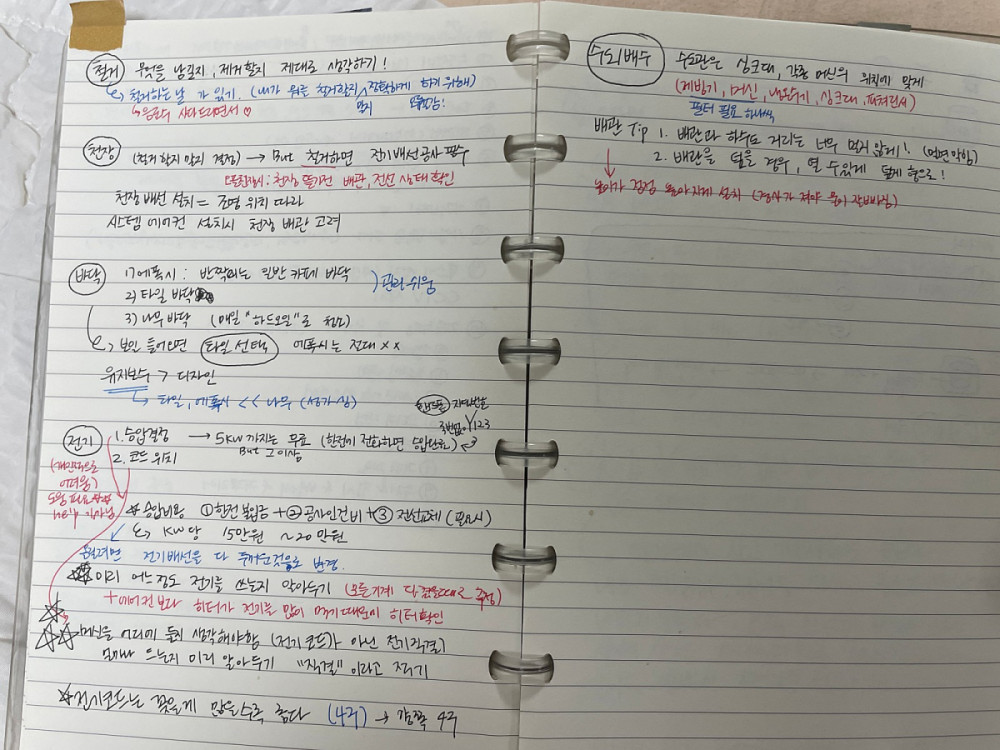 철거 무엇을 남길지, 제거할지 제대로 생각하기!
↳ 철거하는 날 가 있기. (내가 뭐를 철거할지 정확하게 하기 위해)
↳ 음료수 사다드리면서 ♡
천장 (철거할지 말지 결정) → But 철거하면 전기배선공사 필수
천장 뜯기전 배관, 전선 상태 확인
천장 배선 설치 = 조명 위치 따라
시스템 에어컨 설치시 천장 배관 고려
바닥 1) 에폭시 : 반짝이는 일반 카페 바닥
2) 타일 바닥
) 관리 쉬움
3) 나무 바닥 (매일 "하드오일"로 청소)
↳ 보일 들어오면 타일 선택 에폭시는 절대 xx
유지보수 > 디자인
↳ 타일, 에폭시 << 나무 (성가심)
핸드폰 지역번호
국번없이 123
전기 1. 승압결정 → 5kW 까지는 무료 (한전에 전화하면 승압완료)
But 그 이상
2. 코드 위치
(개인적으로 어려움?
도움 필요
help 기사님
* 승압비용 ① 한전 불입금 + ② 공사인건비 + ③ 전선교체 (필요시)
↳ kW 당 15만원 ~ 20만원
늘리려면 전기배선을 다 두꺼운것으로 변경.
☆ 미리 어느정도 전기를 쓰는지 알아두기 (모든기계 다 켰을때로 측정)
+ 에어컨보다 히터가 전기를 많이 먹기때문에 히터확인
☆☆ 머신을 어디에 둘지 생각해야함 (전기코드가 아닌 전기직결)
얼마나 드는지 미리 알아두기 "직결"이라고 적기
☆ 전기코드는 꽂을게 많을수록 좋다 (4구) → 강쪽 4구
수도/배수 수도관은 싱크대, 각종 머신의 위치에 맞게
(제빙기, 머신, 냉온수기, 싱크대, 식기세척기)
필터 필요 하나씩
배관 Tip 1. 배관과 하수도 거리는 너무 멀지 않게! (멀면 막힘)
2. 배관을 덮을 경우, 열 수있게 덮개 형으로!
높이가 점점 높아지게 설치 (경사가 져야 물이 잘빠짐)